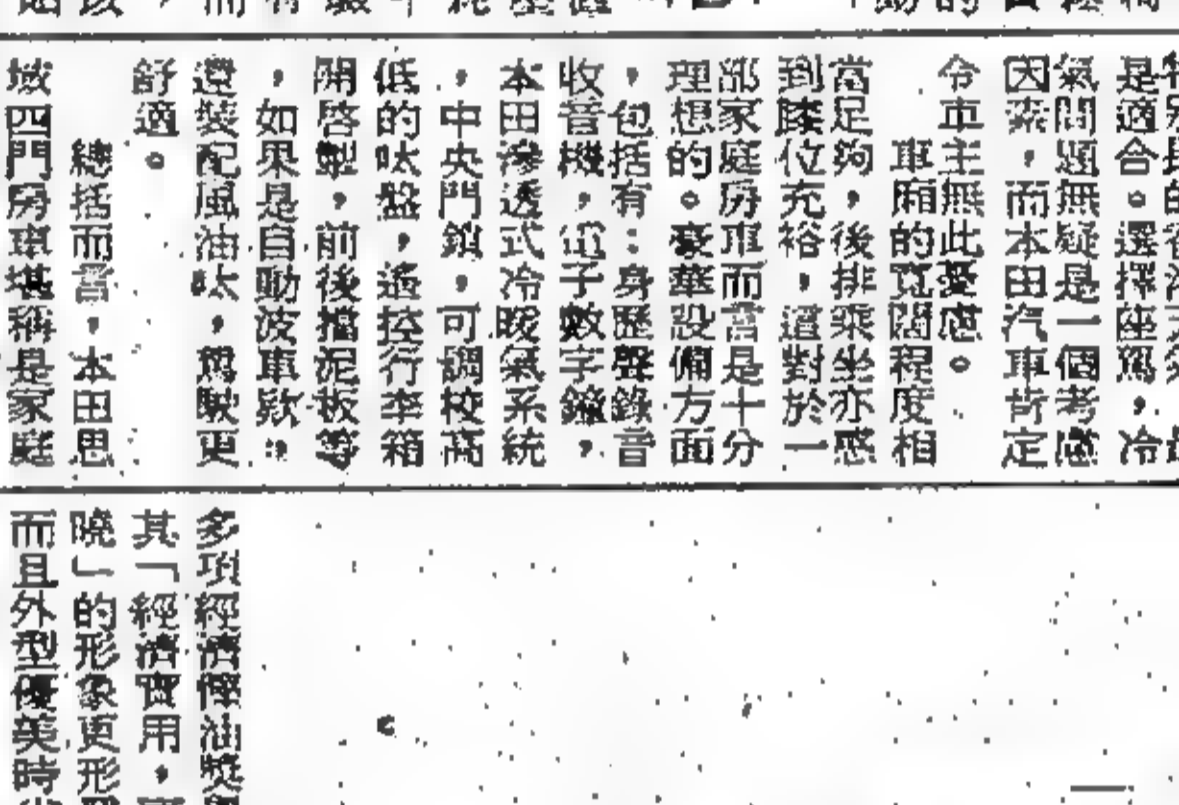 是適合。選擇座駕，冷
氣問題無疑是一個考慮
因素，而本田汽車肯定
令車主無此憂慮。
車廂的寬闊程度相
當足夠，後排乘坐亦感
到膝位充裕，這對於一
部家庭房車而言是十分
理想的。豪華設備方面
，包括有：身歷聲錄音
收音機，電子數字鐘，
本田滲透式冷暖氣系統
，中央門鎖，可調校高
低的呔盤，遙控行李箱
開啓掣，前後擋泥板等
，如果是自動波車欵，
還裝配風油呔，駕駛更
舒適。
總括而言，本田思
域四門房車堪稱是家庭
多項經濟慳油獎
其「經濟實用，
曉」的形象更形
而且外型優美時